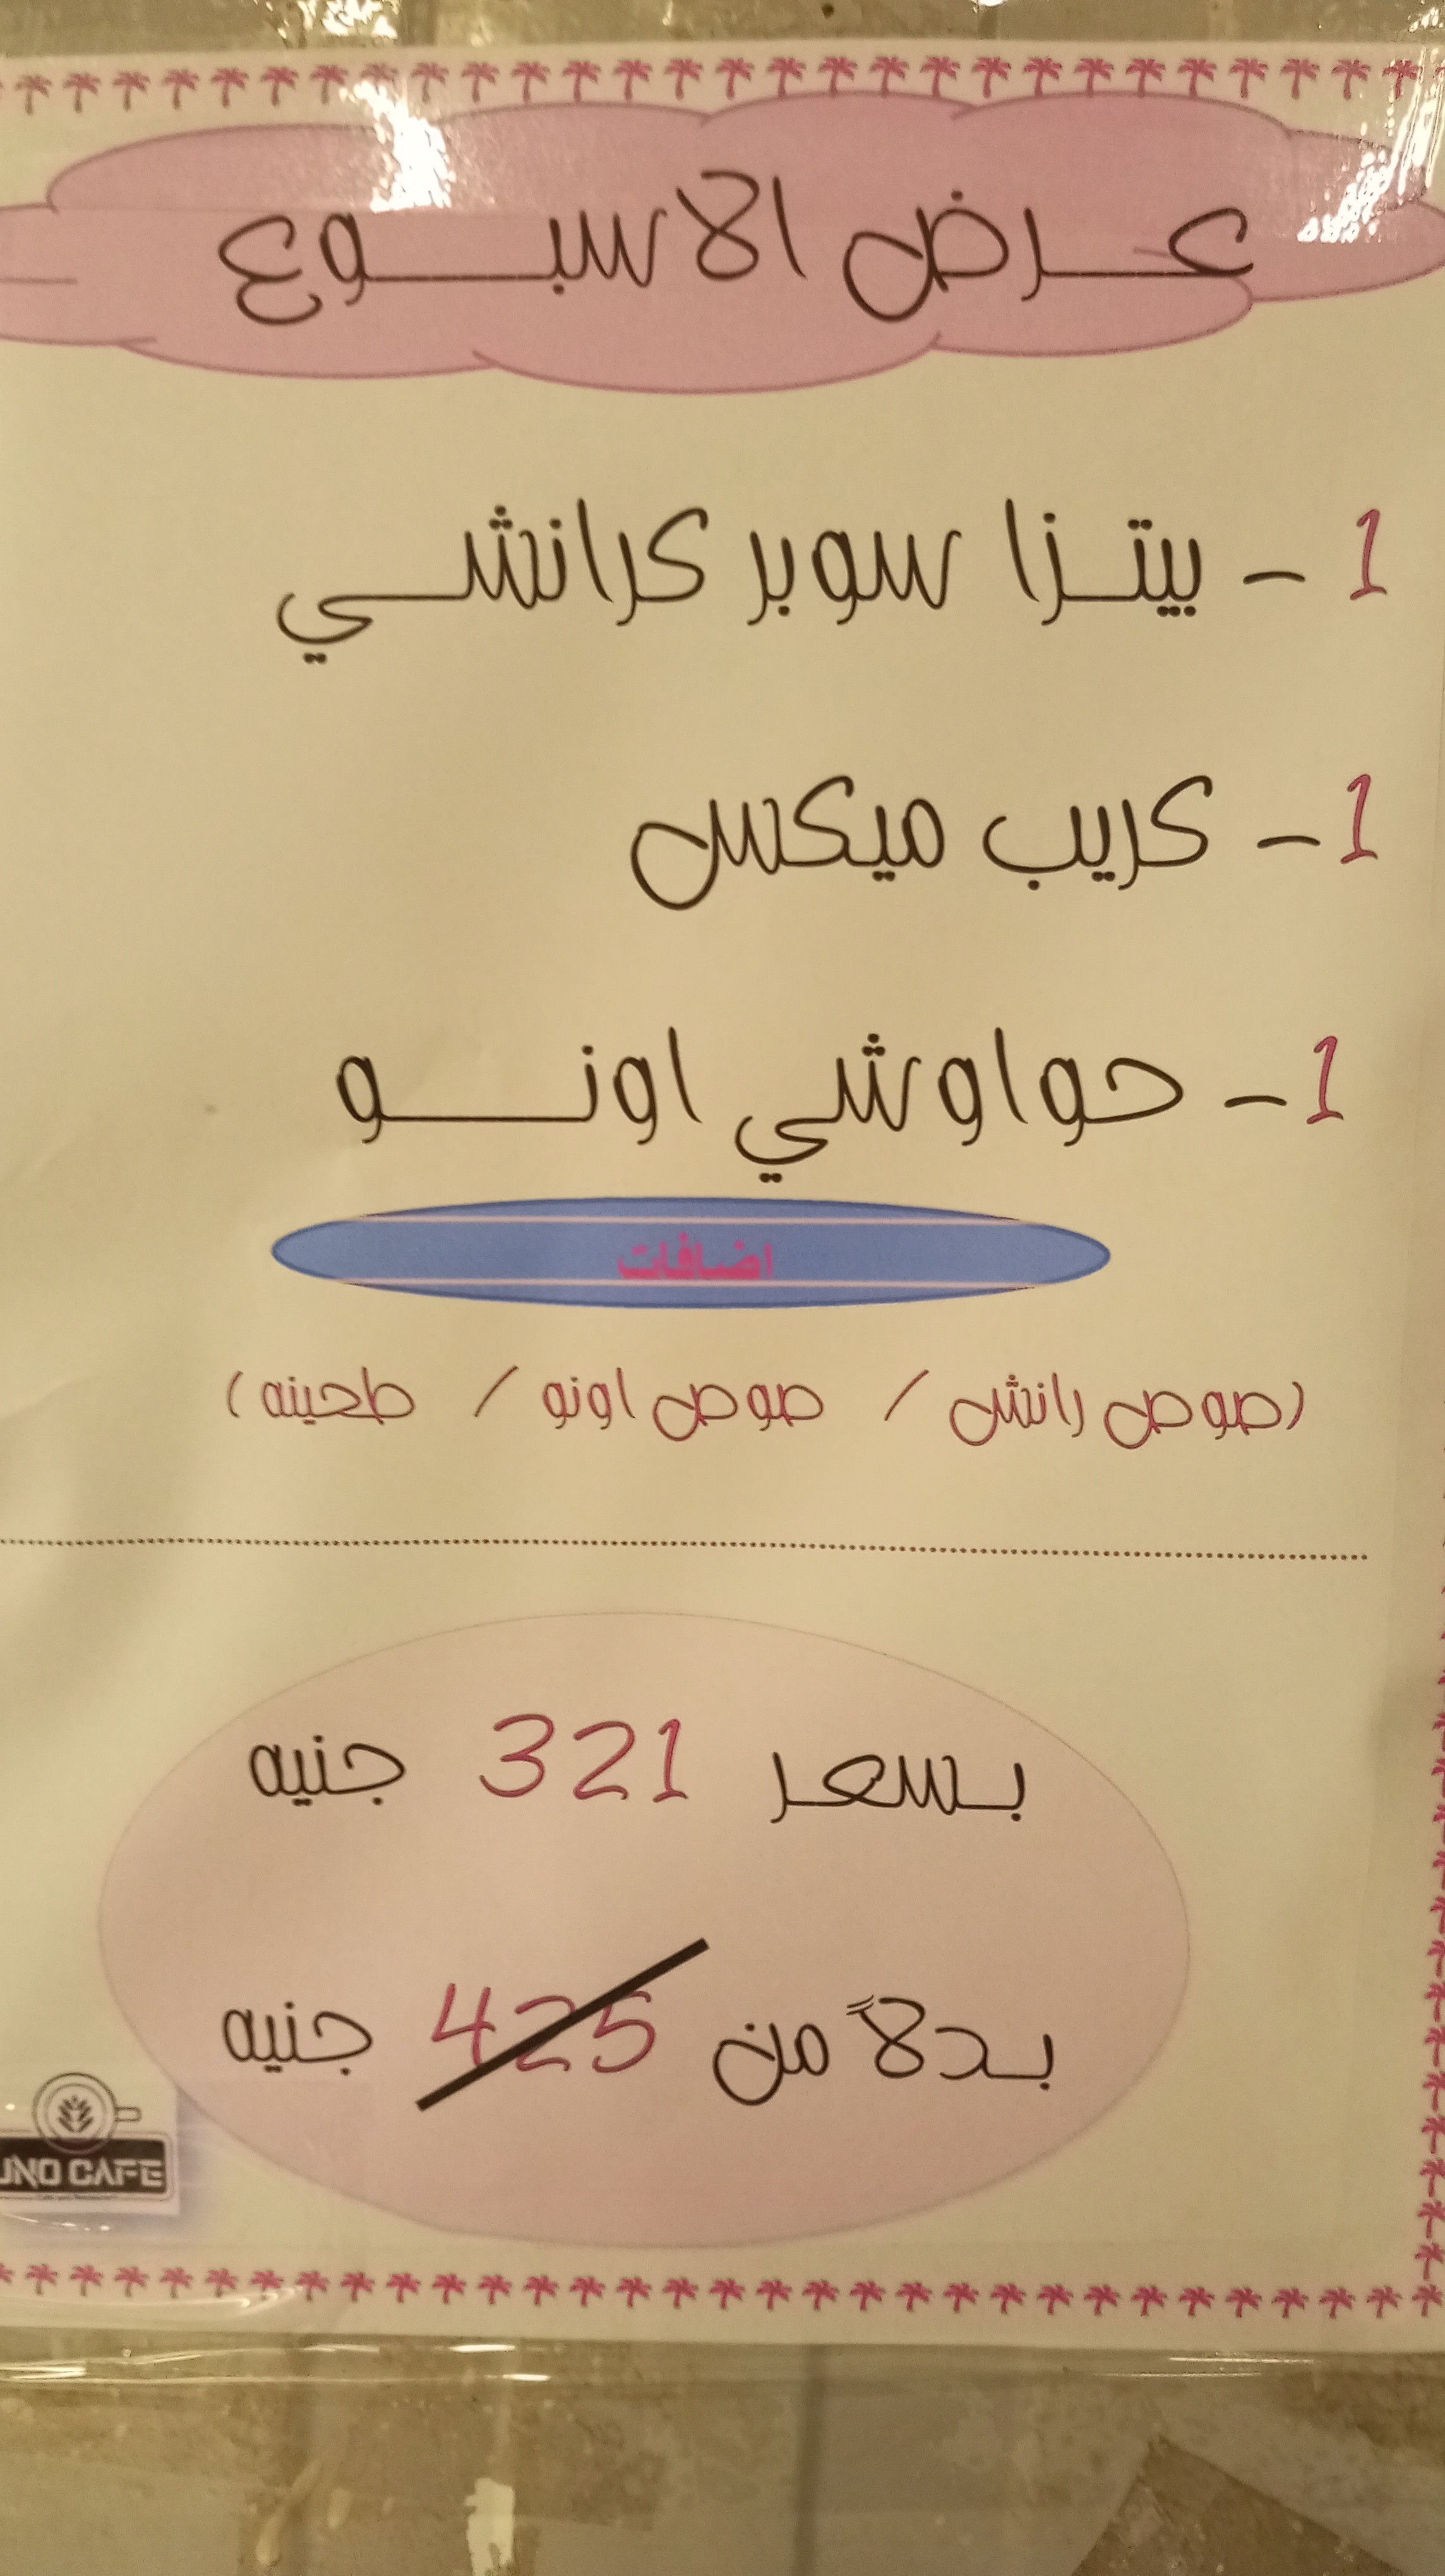 عرض الاسبوع
1 - بيتزا سوبر كرانشي
1 - كريب ميكس
1 - حواوشي اونو
اضافات
(صوص رانش / صوص اونو / طحينه)
بسعر 321 جنيه
بدلاً من 425 جنيه
UNO CAFE